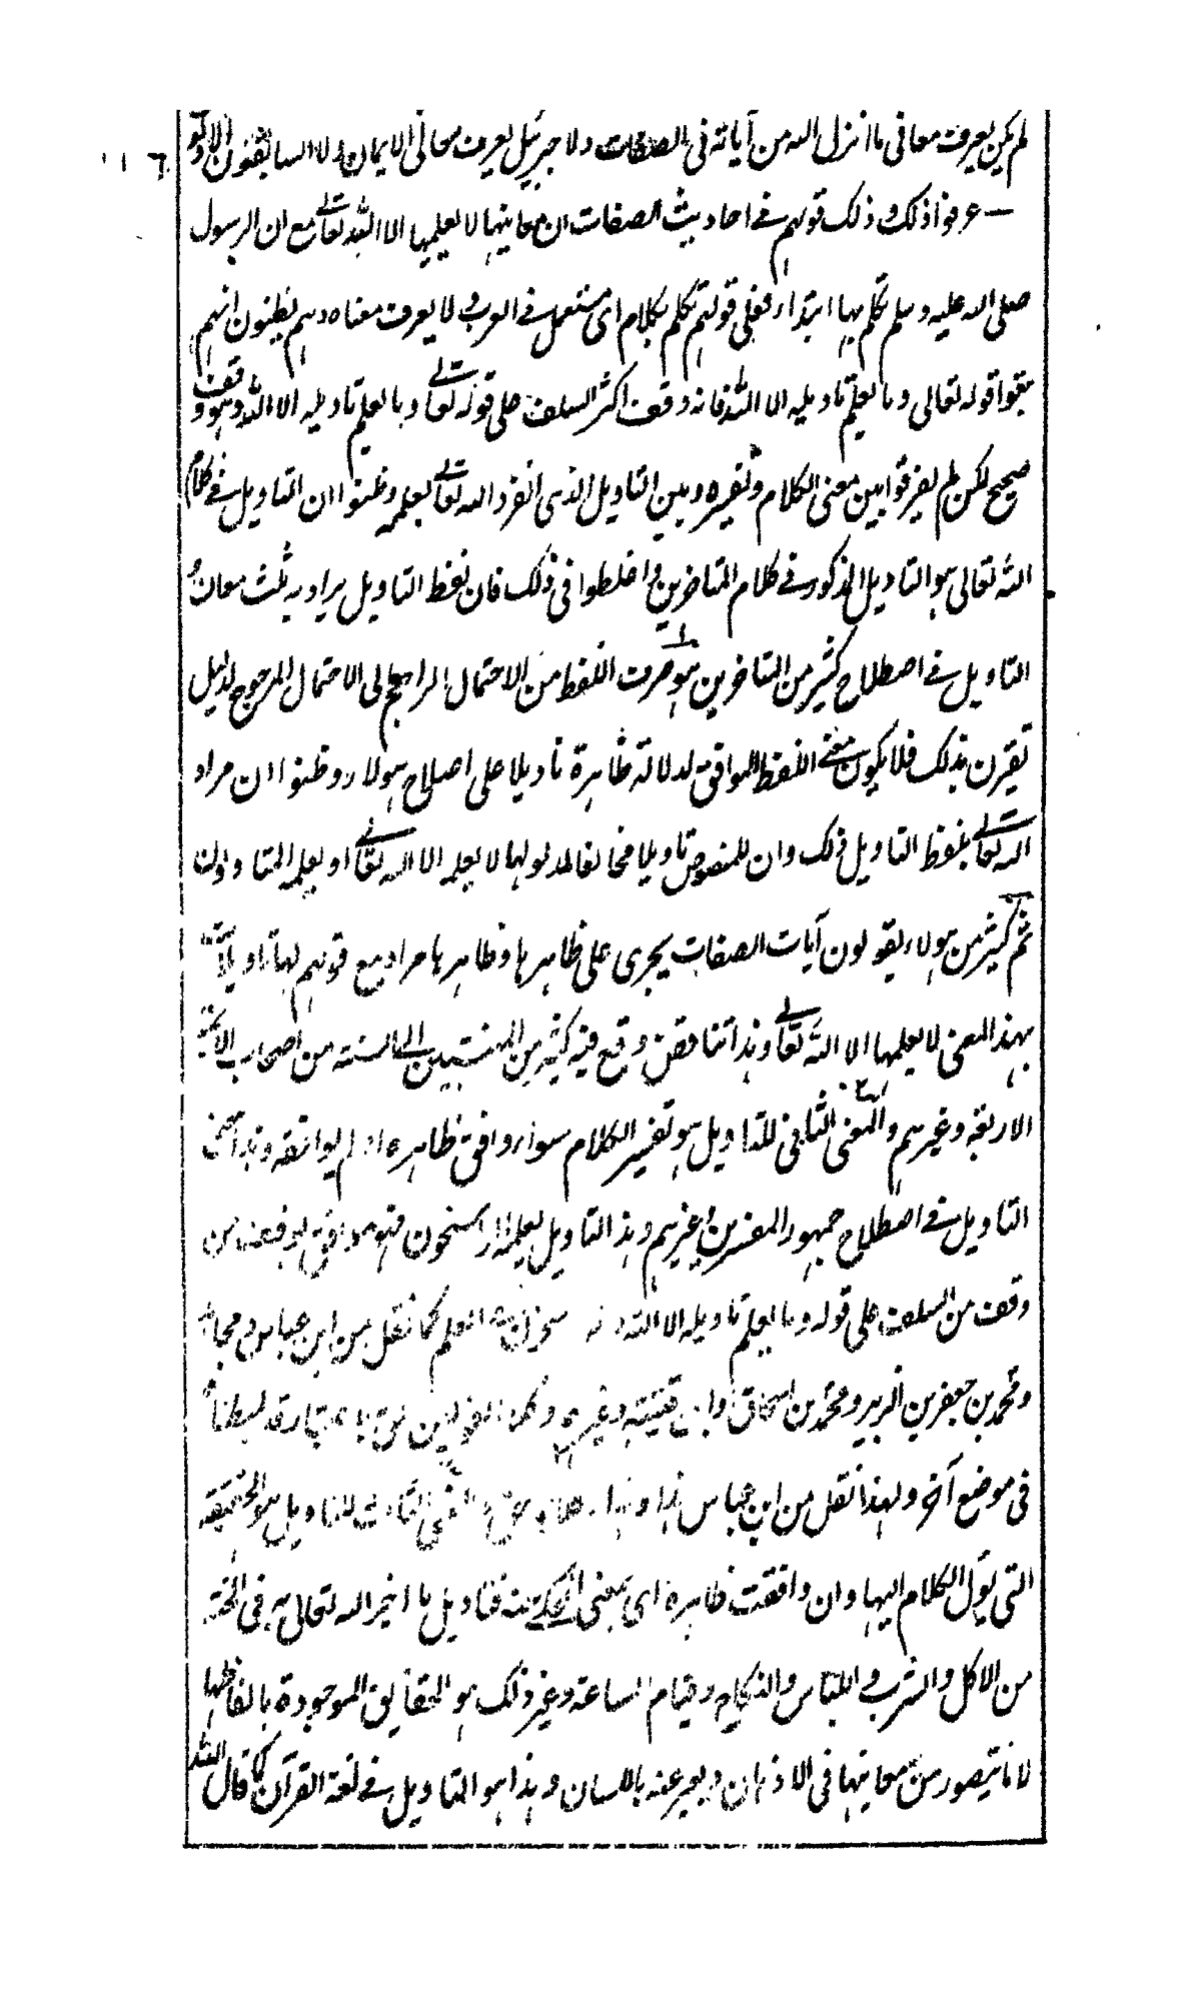 لم يكن يعرف معاني ما انزل الله من آياته في الصفات ولا جبرئيل يعرف معاني الايمان ولا السابقون الاولو
عرفوا ذلك وذلك قولهم في احاديث الصفات ان معانيها لا يعلمها الا الله تعالى مع ان الرسول
صلى الله عليه وسلم تكلم بها ابتداء فعلى قولهم تكلم بكلام اى مستعمل في العرب ولا يعرف معناه وهم يظنون انهم
بقوا قوله تعالى وما يعلم تاويله الا الله فانه وقف اكثر السلف على قوله تعالى وما يعلم تاويله الا الله وهو وقف
صحيح لكن لم يفرقوا بين معنى الكلام وتفسيره وبين التاويل الذى انفرد الله تعالى بعلمه وظنوا ان التاويل في كلام
الله تعالى هو التاويل المذكور في كلام المتاخرين واخلطوا في ذلك فان لفظ التاويل يراد به ثلث معان
التاويل في اصطلاح كثير من المتاخرين هو صرف اللفظ من الاحتمال الراجح الى الاحتمال المرجوح لدليل
يقترن بذلك فلا يكون معنى اللفظ الموافق لدلالة ظاهرة تاويلا على اصلاح هولاء وظنوا ان مراد
الله تعالى بلفظ التاويل ذلك وان للنصوص تاويلا مخالفا لمدلولها لا يعلمه الا الله تعالى او يعلمه المتاولون
ثم كثير من هولاء يقولون آيات الصفات يجرى على ظاهرها وظاهرها مراد مع قولهم لها تاويلات
بهذا المعنى لا يعلمها الا الله تعالى وهذا تناقض وقع فيه كثير من المنتسبين الى السنة من اصحاب الائمة
الاربعة وغيرهم والمعنى الثاني للتاويل هو تفسير الكلام سواء وافق ظاهره او لم يوافقه وهذا معنى
التاويل في اصطلاح جمهور المفسرين وغيرهم وهذا التاويل يعلمه الراسخون فهو موافق لوقف من
وقف من السلف على قوله وما يعلم تاويله الا الله والراسخون في العلم كما نقل من ابن عباس ومجاهد
ومحمد بن جعفر بن الزبير ومحمد بن اسحاق وابن قتيبة وغيرهم وكلا القولين حق باعتبار قد بسطناه
في موضع آخر ولهذا نقل من ابن عباس هذا وهذا وكلاهما حق والمعنى الثالث للتاويل هو الحقيقة
التى يؤل الكلام اليها وان وافقت ظاهره اى بمعنى فتاويل ما اخبر الله تعالى به في الجنة
من الاكل والشرب واللباس والنكاح وقيام الساعة وغير ذلك هو الحقايق الموجودة بالفاظها
لا ما يتصور من معانيها في الاذهان ويعبر عنه باللسان وهذا هو التاويل في لغة القرآن كما قال الله